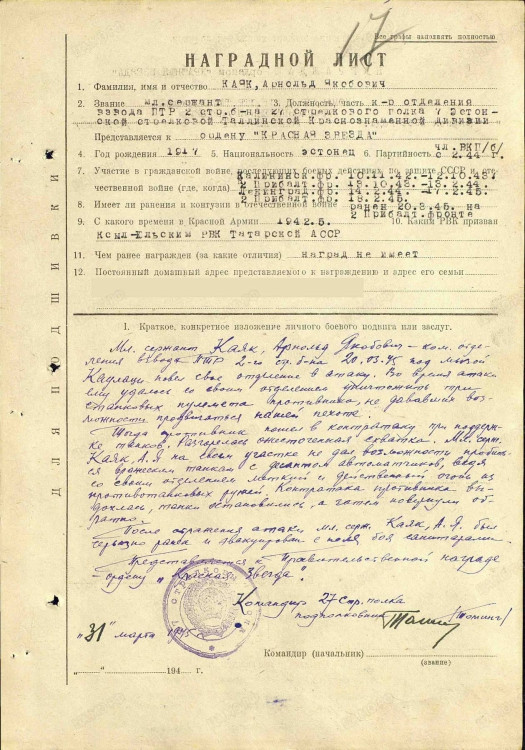 17
Все графы заполнять полностью
НАГРАДНОЙ ЛИСТ
1. Фамилия, имя и отчество КАЯК, Арнольд Якобович
2. Звание мл. сержант 3. Должность, часть к-р отделения
взвода ПТР 2 стр. б-на 27 стрелкового полка 7 Эстон-
ской стрелковой Таллинской Краснознаменной дивизии
Представляется к ордену "КРАСНАЯ ЗВЕЗДА"
4. Год рождения 1917 5. Национальность эстонец 6. Партийность чл. ВКП/б/ с 2.44 г.
7. Участие в гражданской войне, последующих боевых действиях по защите СССР и оте-
чественной войне (где, когда)
Калининск. фр.
2 Прибалт. фр. 13.10.43 - 13.2.44.
Ленинград. фр. 14.2.44 - 17.2.45.
2 Прибалт. фр. 18.2.45.
8. Имеет ли ранения и контузии в отечественной войне ранен 20.3.45. на
2 Прибалт. фронте
9. С какого времени в Красной Армии 1942.5. 10. Каким РВК призван
Кзыл-Юльским РВК Татарской АССР
11. Чем ранее награжден (за какие отличия) наград не имеет
12. Постоянный домашний адрес представляемого к награждению и адрес его семьи
ДЛЯ ПОДШИВКИ
I. Краткое, конкретное изложение личного боевого подвига или заслуг.
Мл. сержант Каяк, Арнольд Якобович - ком. отде-
ления взвода ПТР 2-го стр. б-на 20.03.45 под мызой
Каулаци повел свое отделение в атаку. Во время атаки
ему удалось со своим отделением уничтожить три
станковых пулемета противника, не дававших воз-
можности продвигаться нашей пехоте.
Тогда противник пошел в контратаку при поддерж-
ке танков. Разгорелась ожесточенная схватка. Мл. серж.
Каяк А.Я. на своем участке не дал возможности пробить-
ся вражеским танкам с десантом автоматчиков, ведя
со своим отделением меткий и действенный огонь из
противотанковых ружей. Контратака противника вы-
дохлась, танки остановились, а затем повернули об-
ратно.
После отражения атаки мл. серж. Каяк, А.Я. был
серьезно ранен и эвакуирован с поля боя санитарами.
Представляется к Правительственной награде
- ордену "Красная Звезда".
Командир 27 Стр. полка
подполковник /Томинг/
"31" марта 1945 г.
Командир (начальник)
(звание)
" " 194 г.